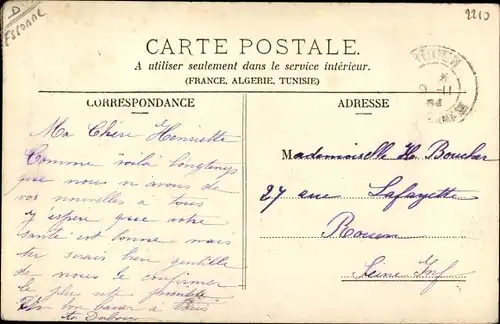 D
ESCORNE
2210
CARTE POSTALE.
A utiliser seulement dans le service intérieur.
(FRANCE, ALGERIE, TUNISIE)
CORRESPONDANCE
ADRESSE
Ma Chère Henriette
Comme voilà longtemps
que nous n avons de
vos nouvelles a tous
j espère que votre
santé est bonne mais
tu serais bien gentille
de nous le confirmer
le plus vite possible
Un bon baiser a tous
Mademoiselle Boucher
27 rue Lafayette
Rouen
Seine Inf